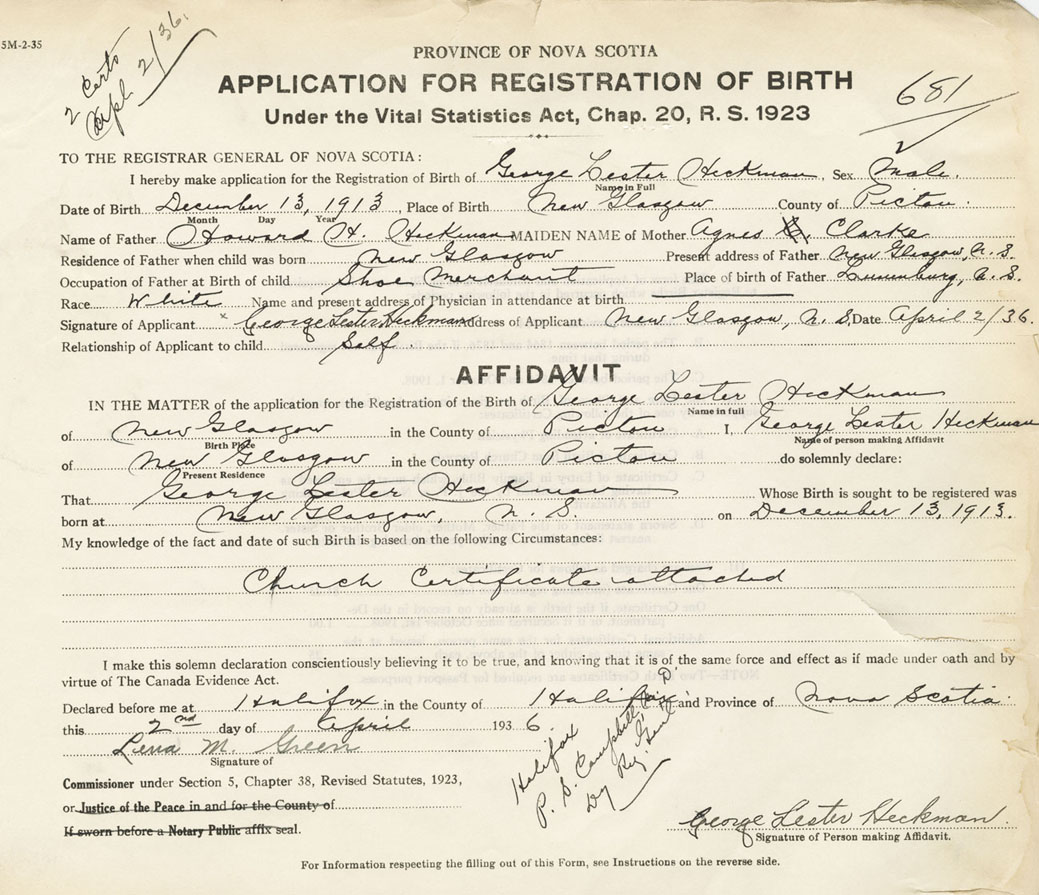 5M-2-35
2 Certs
Apl. 2/36.
PROVINCE OF NOVA SCOTIA
APPLICATION FOR REGISTRATION OF BIRTH
681
Under the Vital Statistics Act, Chap. 20, R. S. 1923
TO THE REGISTRAR GENERAL OF NOVA SCOTIA:
I hereby make application for the Registration of Birth of George Lester Heckman, Sex Male.
Name in Full
Date of Birth December 13, 1913, Place of Birth New Glasgow County of Pictou.
Month Day Year
Name of Father Howard H. Heckman MAIDEN NAME of Mother Agnes Clarke
Residence of Father when child was born New Glasgow Present address of Father New Glasgow, N. S.
Occupation of Father at Birth of child Shoe Merchant Place of birth of Father Lunenburg, N. S.
Race White Name and present address of Physician in attendance at birth
Signature of Applicant x George Lester Heckman Address of Applicant New Glasgow, N. S. Date April 2/36.
Relationship of Applicant to child Self.
AFFIDAVIT
IN THE MATTER of the application for the Registration of the Birth of George Lester Heckman
Name in full
of New Glasgow in the County of Pictou I, George Lester Heckman
Birth Place Name of person making Affidavit
of New Glasgow in the County of Pictou do solemnly declare:
Present Residence
That George Lester Heckman Whose Birth is sought to be registered was
born at New Glasgow, N. S. on December 13, 1913.
My knowledge of the fact and date of such Birth is based on the following Circumstances:
Church Certificate attached
I make this solemn declaration conscientiously believing it to be true, and knowing that it is of the same force and effect as if made under oath and by
virtue of The Canada Evidence Act.
Declared before me at Halifax in the County of Halifax and Province of Nova Scotia
this 2nd day of April 1936
Lena M. Green
Signature of
Halifax
P. S. Campbell M. D.
Dy Reg. Genl
Commissioner under Section 5, Chapter 38, Revised Statutes, 1923,
or Justice of the Peace in and for the County of
If sworn before a Notary Public affix seal.
George Lester Heckman.
Signature of Person making Affidavit.
For Information respecting the filling out of this Form, see Instructions on the reverse side.